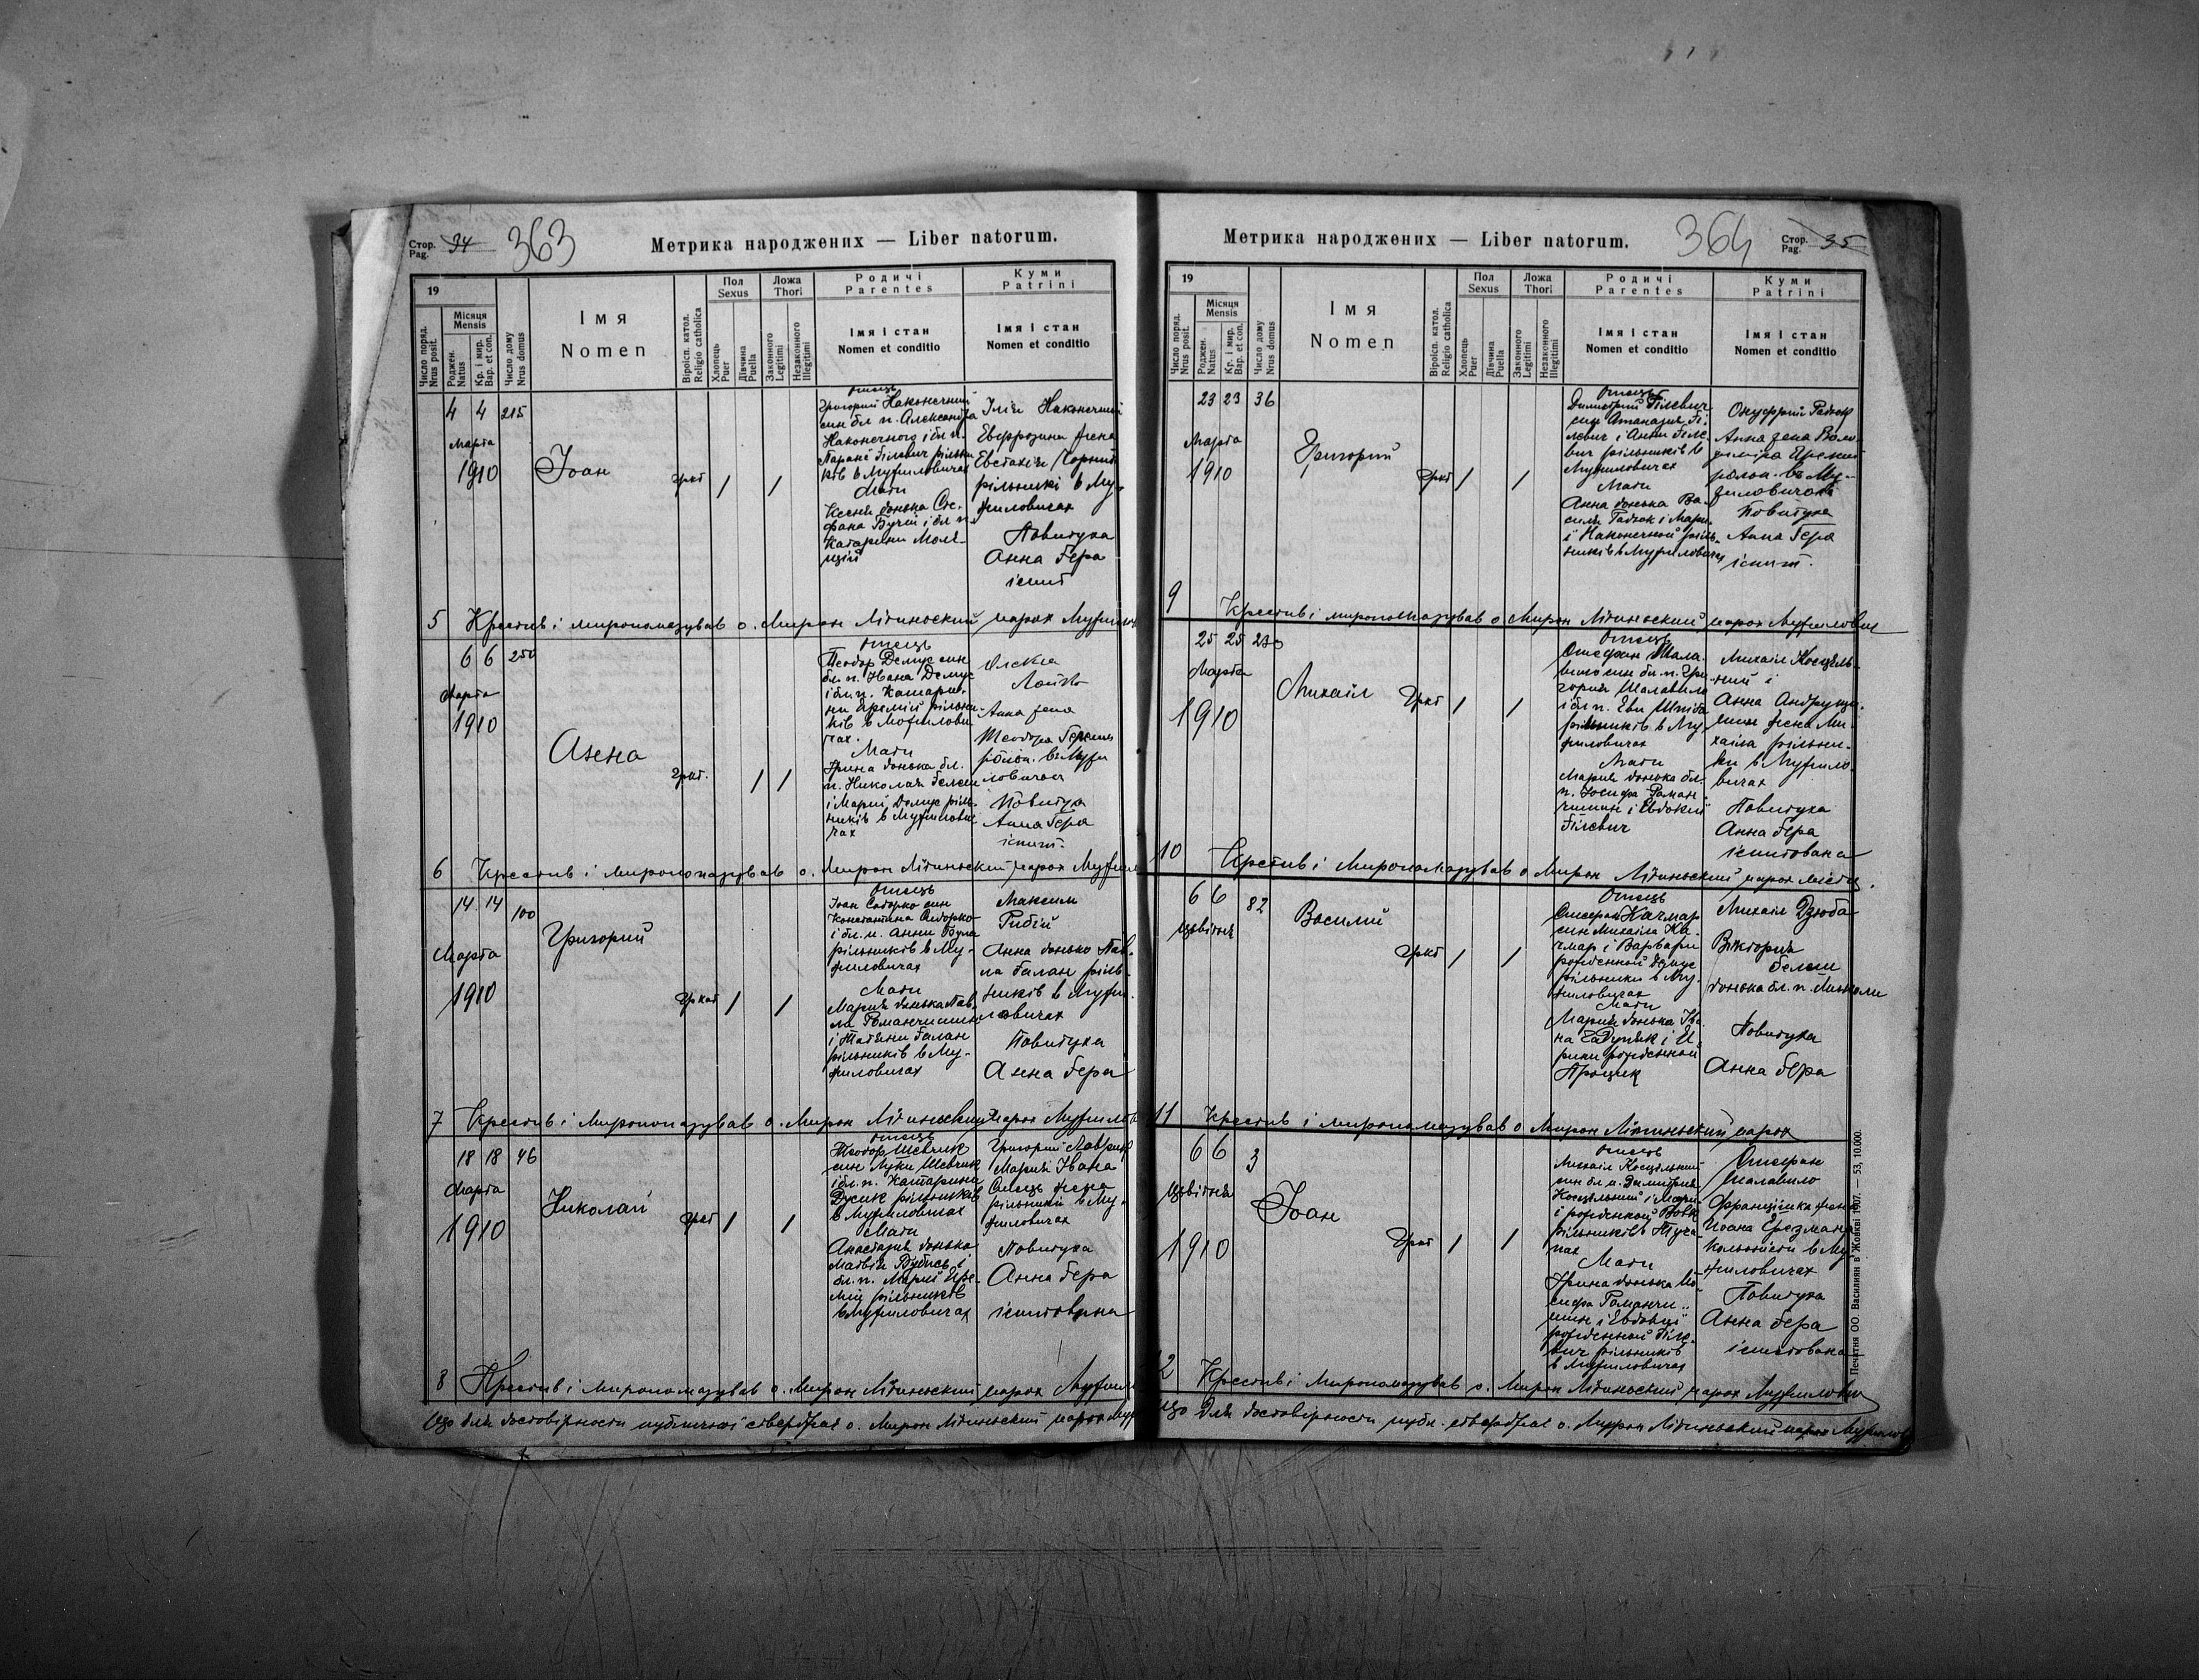 Стор.
Pag. 34 363 Метрика народжених — Liber natorum.
19
Число поряд.
Nrus posit.
Місяця
Mensis
Роджен.
Natus
Кр. і мир.
Bap. et con.
Число дому
Nrus domus
Імя
Nomen
Віроісп. катол.
Religio catholica
Пол
Sexus
Хлопець
Puer
Дївчина
Puella
Ложа
Thori
Законного
Legitimi
Незаконного
Illegitimi
Родичі
Parentes
Імя і стан
Nomen et conditio
Куми
Patrini
Імя і стан
Nomen et conditio
4 4 215
Марта
1910
Іоан
гркт / /
отець
Григорий Наконечний
син бл. п. Александра
Наконечного і бл. п.
Мати
Ксеня донька Сте-
Ілія Наконечний
Евфрозина жена
рільники в Му-
филовичах
Повитуха
Анна Гера
іспит
5 Крестив і миропомазував о. Мирон Літиньский парох
6 6 250
Марта
1910
Анна
гркт. / /
отець
Теодор Демус син
бл. п. Ивана Демус
і бл. п. Катари-
Мати
Ирина донька бл.
п. Николая
і Мариї Демус ріль-
ників в
чах
Олекса
Анна жена
Теодора
Повитуха
Анна Гера
іспит.
6 Крестив і миропомазував о. Мирон Літиньский парох
14 14 100
Марта
1910
Григорий
гркт / /
отець
Іоан син
Константина
і бл. п. Анни
рільників в Му-
филовичах
Мати
Мария донька Пав-
ла Романчишин
і Татяни Галан
рільників в Му-
филовичах
Максим
Анна донька Пав-
ла Галан ріль-
ників в Муфи-
ловичах
Повитуха
Анна Гера
7 Крестив і миропомазував о. Мирон Літиньский парох
18 18 46
Марта
1910
Николай
гркт / /
отець
Теодор Шевчик
син Луки Шевчик
і бл. п. Катарини
рільників
в Муфиловичах
Мати
Анастазия донька
бл. п. Мариї Яре-
мій рільників
в Муфиловичах
Григорий Лаврик
Мария Івана
жена
рільники в Му-
филовичах
Повитуха
Анна Гера
іспитована
8 Крестив і миропомазував о. Мирон Літиньский парох
Що для достовірности публичної стверджає о. Мирон Літиньский парох
Метрика народжених — Liber natorum. 364 Стор.
Pag. 35
19
Число поряд.
Nrus posit.
Місяця
Mensis
Роджен.
Natus
Кр. і мир.
Bap. et con.
Число дому
Nrus domus
Імя
Nomen
Віроісп. катол.
Religio catholica
Пол
Sexus
Хлопець
Puer
Дївчина
Puella
Ложа
Thori
Законного
Legitimi
Незаконного
Illegitimi
Родичі
Parentes
Імя і стан
Nomen et conditio
Куми
Patrini
Імя і стан
Nomen et conditio
23 23 36
Марта
1910
Григорий
гркт / /
Отець
Димитрий Гілевич
син Атаназия Гі-
левич і Анни Гіле-
вич рільників в
Муфиловичах
Мати
Анна донька Ва-
силя і Мари-
ї Наконечної ріль-
ників в Муфиловичах
Онуфрий
Анна жена Воло-
димира Яремій
рільн. в Му-
филовичах
Повитуха
Анна Гера
іспит.
9 Крестив і миропомазував о Мирон Літиньский парох Муфилович
25 25 230
Марта
1910
Михаіл
гркт / /
Отець
Стефан Шала-
вило син бл. п. Гри-
гория Шалавило
і бл. п. Еви
рільників в Му-
филовичах
Мати
Мария донька бл.
п. Іосифа Роман-
чишин і Евдокиї
Гілевич
Михаіл Косціль-
ний і
Анна Андрущи-
шин жена Ми-
хаіла рільни-
ки в Муфило-
вичах
Повитуха
Анна Гера
іспитована
10 Крестив і Миропомазував о Мирон Літиньский парох
6 6 82
Цьвітня
1910
Василий
гркт / /
Отець
Стефан Качмар
син Михаіла Ка-
чмар і Варвари
рожденної Демус
рільники в Му-
филовичах
Мати
Мария донька Іва-
на і И-
рини рожденної
Процик
Михаіл Дзюба
Виктория
донька бл. п. Миколи
Повитуха
Анна Гера
11 Крестив і миропомазував о Мирон Літиньский парох
6 6 3
Цьвітня
1910
Іоан
гркт / /
отець
Михаіл Косцїльний
син бл. п. Димитрия
Косцільний і Мари-
ї рожденної Вовк
рільників в
Мати
Ирина донька Ио-
сифа Романчи-
шин і Евдокиї
рожденної Гіле-
вич рільників
в Муфиловичах
Стефан
Шалавило
Францішка жена
Иоана
в Му-
филовичах
Повитуха
Анна Гера
іспитована
12 Крестив і Миропомазував о. Мирон Літиньский парох Муфилович
Що для достовірности публ. стверджає о. Мирон Літиньский парох
Печатня ОО. Василиян в Жовкві 1907. — 53, 10.000.